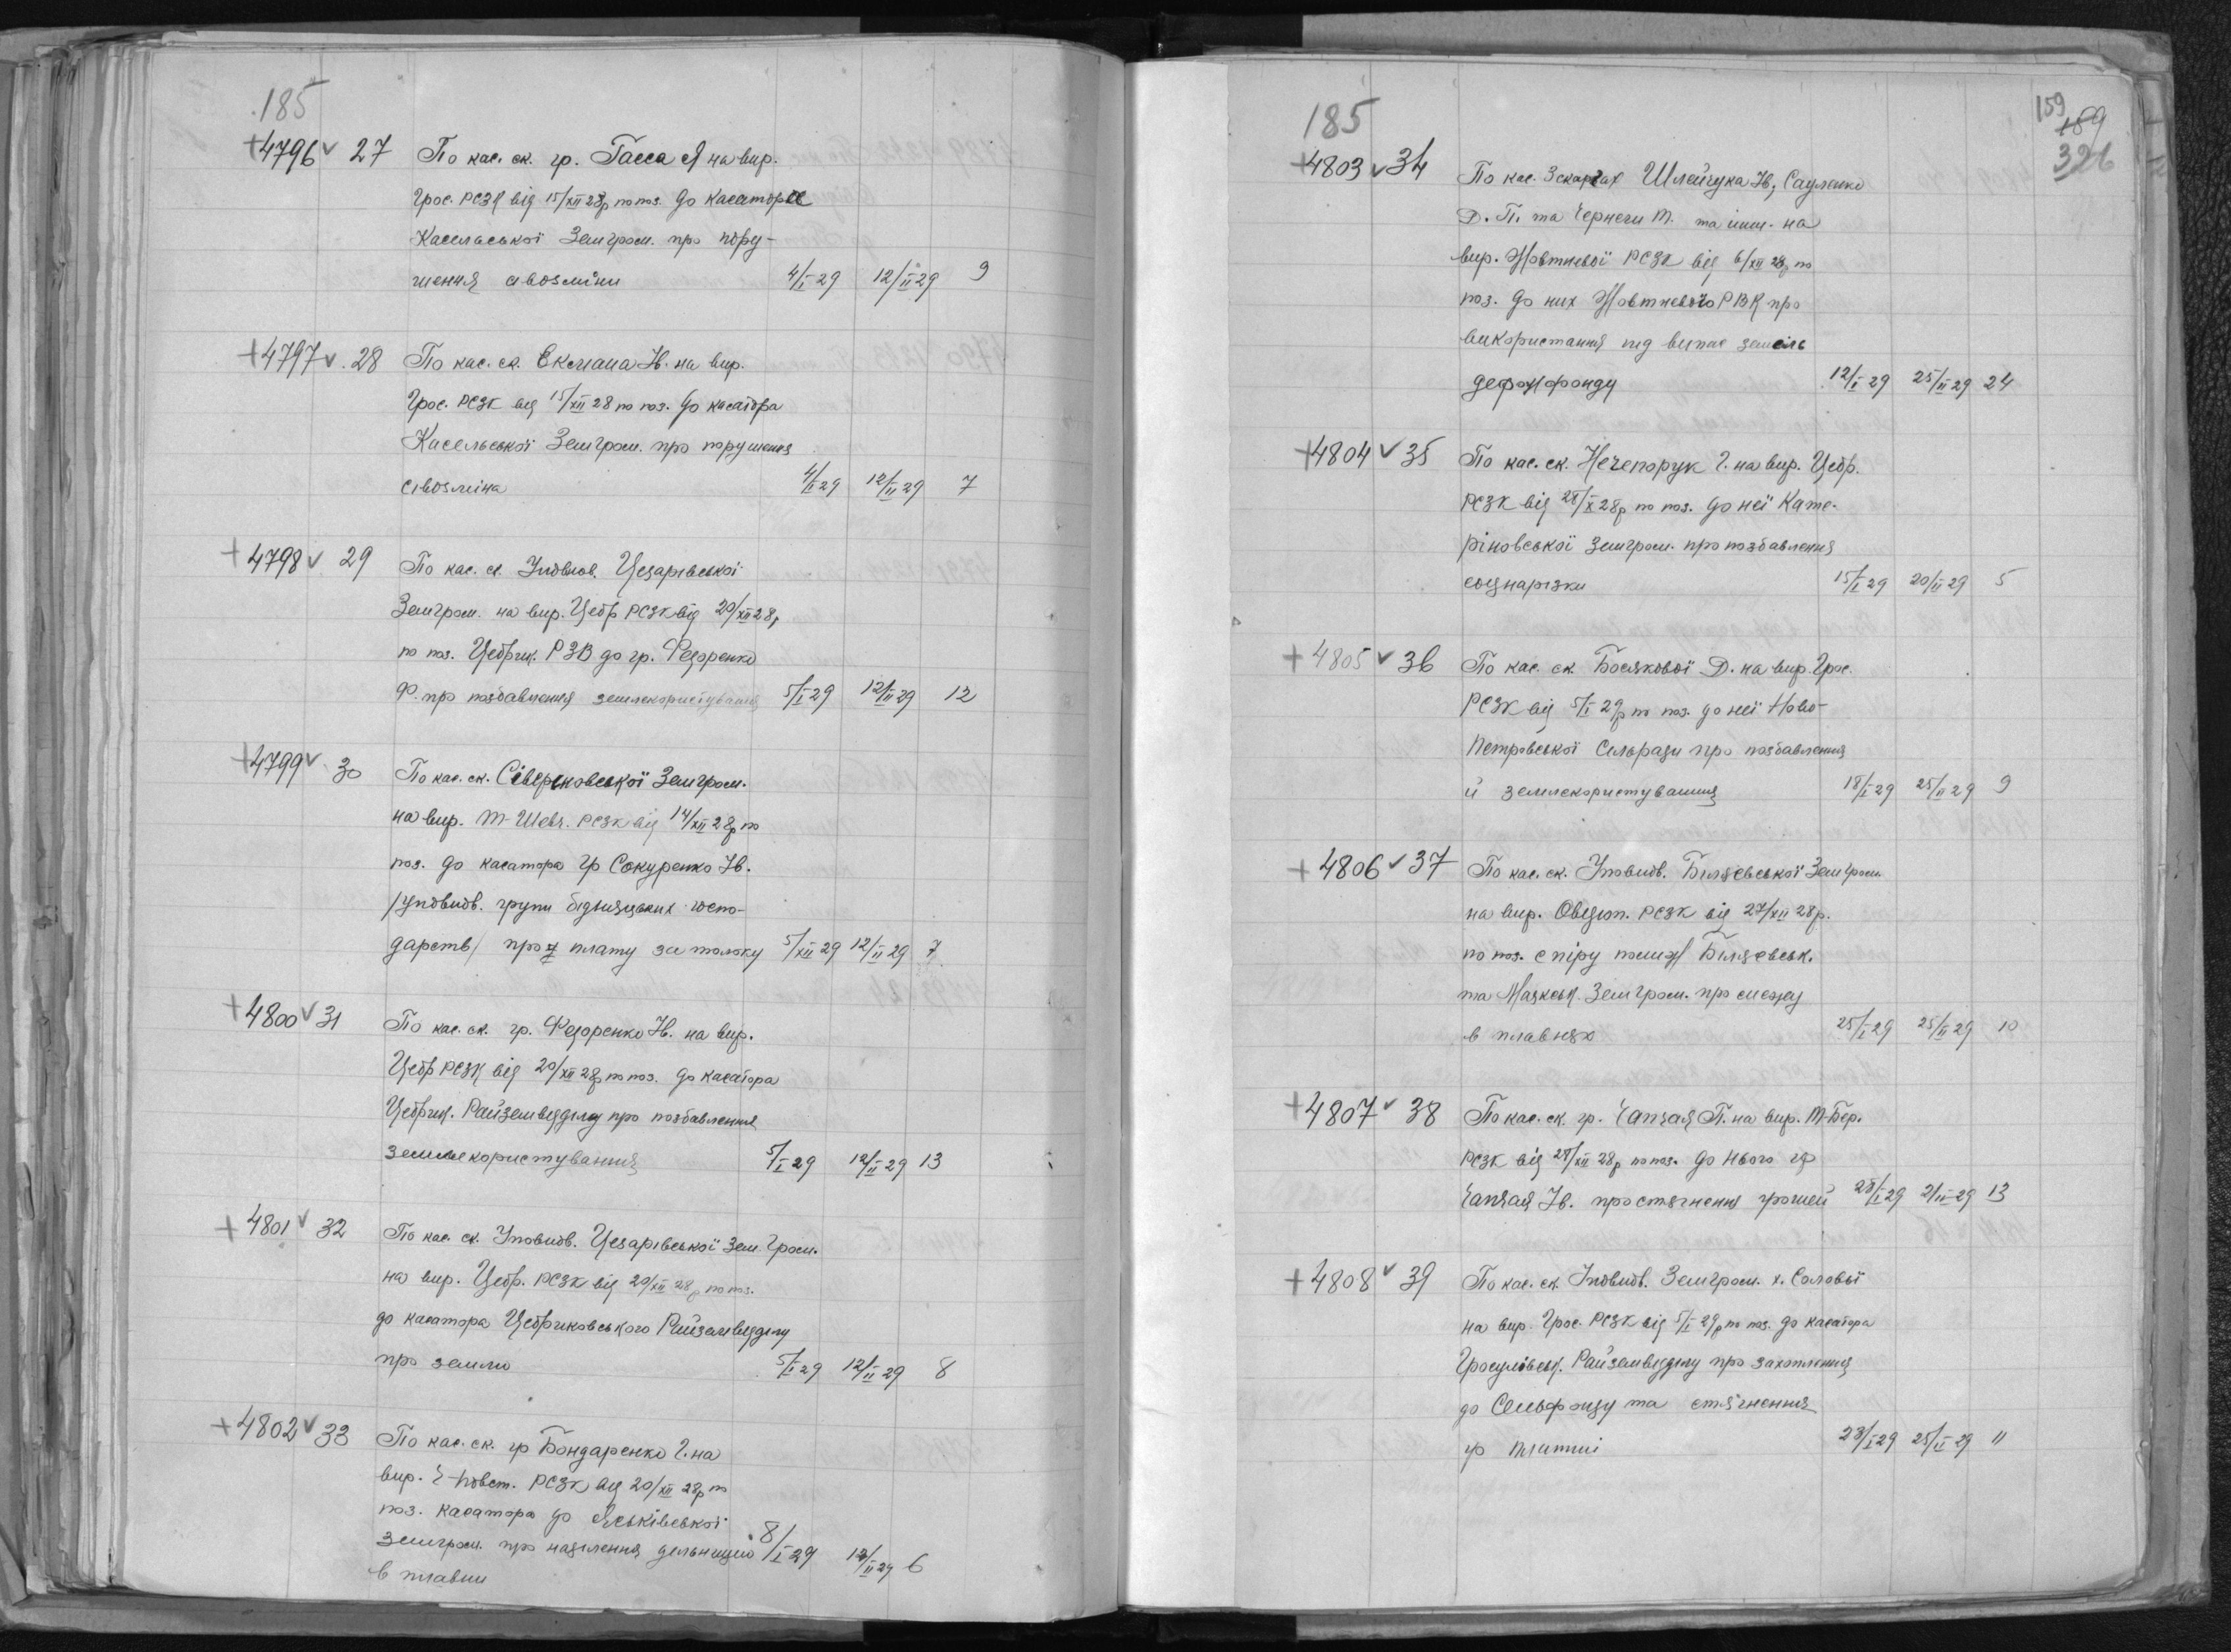 185
+4796 v 27 По кас. ск. гр. Гасса Я на вир.
Грос. РСЗК від 15/XII 28р по поз. до касатора
КасельськоїЗемгром. про пору-
шення сівозміни 4/I 29 12/II 29 9
+4797 v. 28 По кас. ск. Ексмана Ів. на вир.
Грос. РСЗК від 15/XII 28 по поз. до касатора
Касельської Земгром. про порушення
сівозміна 4/I 29 12/II 29 7
+4798 v 29 По кас. ск. Уповнов. Цезарівської
Земгром. на вир. Цебр РСЗК від 20/XII 28р
по поз. Цебрик. РЗВ до гр. Федоренко
Ф. про позбавлення землекористування 5/I 29 12/II 29 12
+4799 v 30 По кас. ск. Сіверіновської Земгром.
на вир. М-Шевч. РСЗК від 14/XII 28р по
поз. до касатора гр Сокуренко Ів.
/уповнов. групи бідняцьких госпо-
дарств/ про плату за толоку 5/XII 29 12/II 29 7
+4800 v 31 По кас. ск. гр. Федоренко Ів. на вир.
Цебр РСЗК від 20/XII 28р по поз. до касатора
Цебрик. Райземвідділу про позбавлення
землекористування 5/I 29 12/II 29 13
+4801 v 32 По кас. ск. Уповнов. Цезарівської Зем. Гром.
на вир. Цебр. РСЗК від 20/XII 28р по поз.
до касатора Цебриковського Райземвідділу
про землю 5/I 29 12/II 29 8
+4802 v 33 По кас. ск. гр Бондаренко Г. на
вир. Ч-Повст. РСЗК від 20/XII 28р по
поз. касатора до Яськівської
земгром. про наділення дільницею 8/I 29 12/II 29 6
в плавни
185
159
189
326
+4803 v 34 По кас. Зскаргах Шлейчука Ів, Сауленко
Д. П. та Чернеги М. та інш. на
вир. Жовтневої РСЗК від 6/XII 28р по
поз. до них Жовтневого РВК про
використання під випас земель
держфонду 12/I 29 25/II 29 24
+4804 v 35 По кас. ск. Нечепорук Г. на вир. Цебр.
РСЗК від 28/X 28р по поз. до неї Кате-
ріновської земгром. про позбавлення
соцнарізки 15/I 29 20/II 29 5
+4805 v 36 По кас. ск. Босякової Д. на вир. Грос.
РСЗК від 5/I 29р по поз. до неї Ново-
Петровської Сільради про позбавлення
її землекористування 18/I 29 25/II 29 9
+4806 v 37 По кас. ск. Уповнов. Біляєвської Земгром.
на вир. Овідіоп. РСЗК від 27/XII 28р.
по поз. спіру поміж Біляєвськ.
та Маякськ. Земгром. про межу
в плавнях 25/I 29 25/II 29 10
+4807 v 38 По кас. ск. гр. Чапчая П. на вир. М-Бер.
РСЗК від 28/XII 28р по поз. до нього гр
Чапчая Ів. про стягнення грошей 28/I 29 2/II-29 13
+4808 v 39 По кас. ск. Уповнов. Земгром. х. Соловьі
на вир. Грос. РСЗК від 5/I 29р по поз. до касатора
Гросулівськ. Райземвідділу про захоплення
до Сільфонду та стягнення
гр платні 28/I 29 25/II 29 11